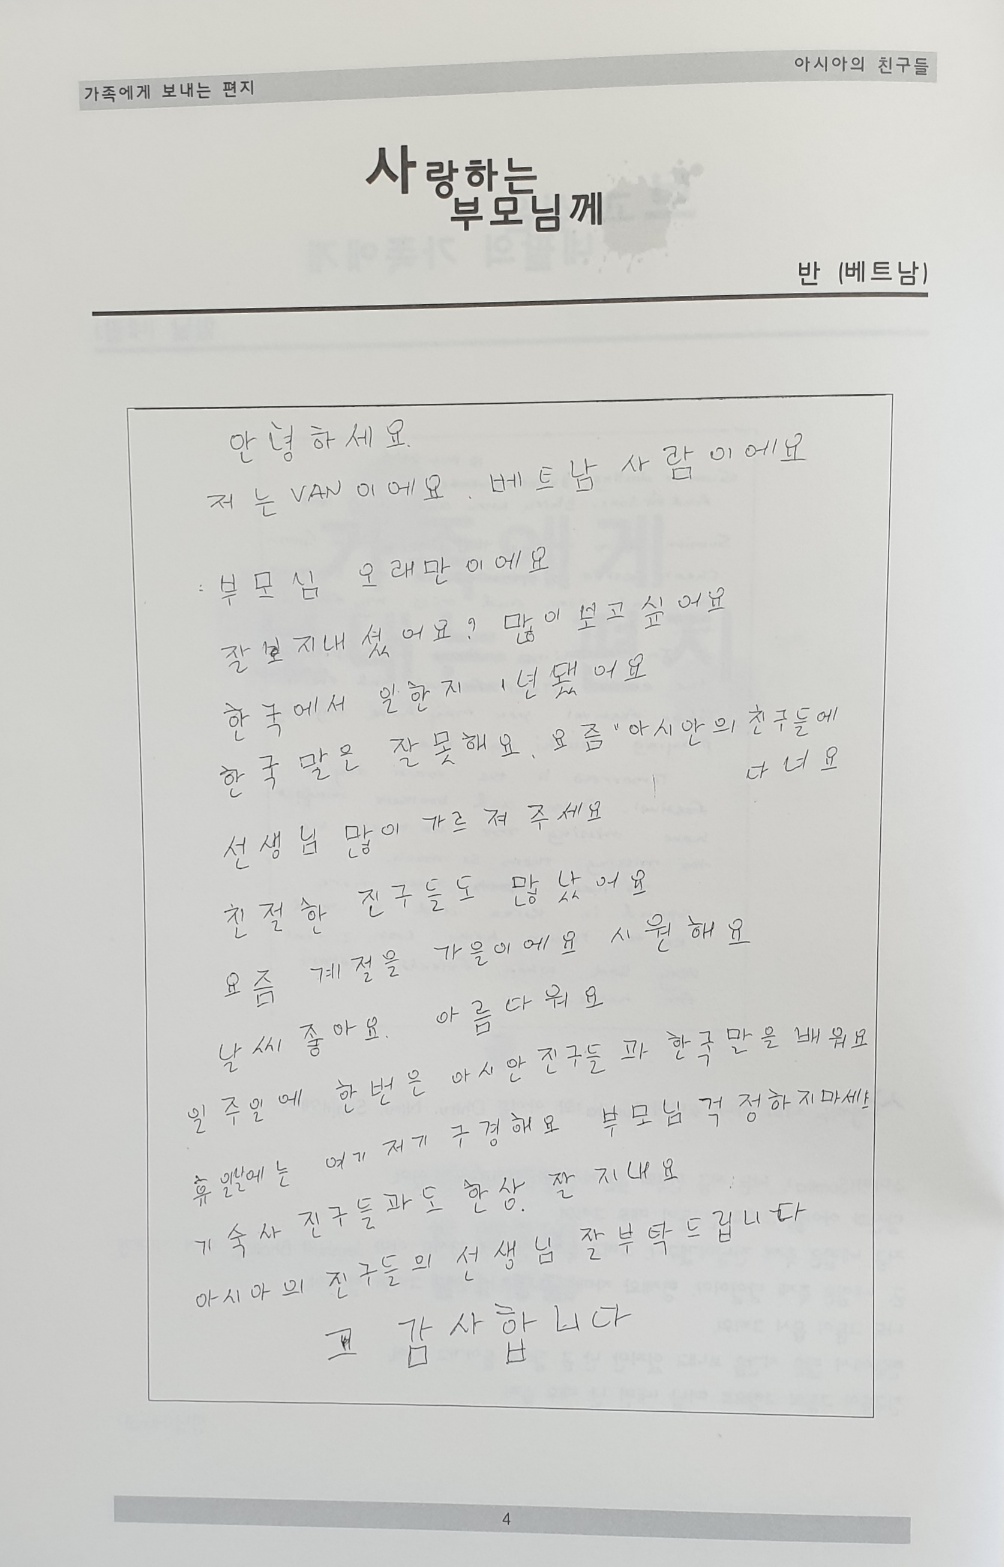 가족에게 보내는 편지
아시아의 친구들
사랑하는
부모님께
반 (베트남)
안녕하세요.
저는 VAN이에요. 베트남 사람이에요
: 부모심 오래만이에요
잘 지내셨어요? 많이 보고싶어요
한국에서 일한지 1년됐어요
한국말은 잘못해요. 요즘 "아시안의 친구들에
다녀요
선생님 많이 가르져 주세요
친절한 진구들도 많났어요
요즘 계절을 가을이에요 시원해요
날씨 좋아요. 아름다워요
일주일에 한번은 아시안 진구들과 한국말을 배워요
휴일에는 여기저기 구경해요 부모님 걱정하지마세요
기숙사 진구들과도 한상. 잘 지내요
아시아의 진구들의 선생님 잘부탁드립니다
고 감사합니다
4